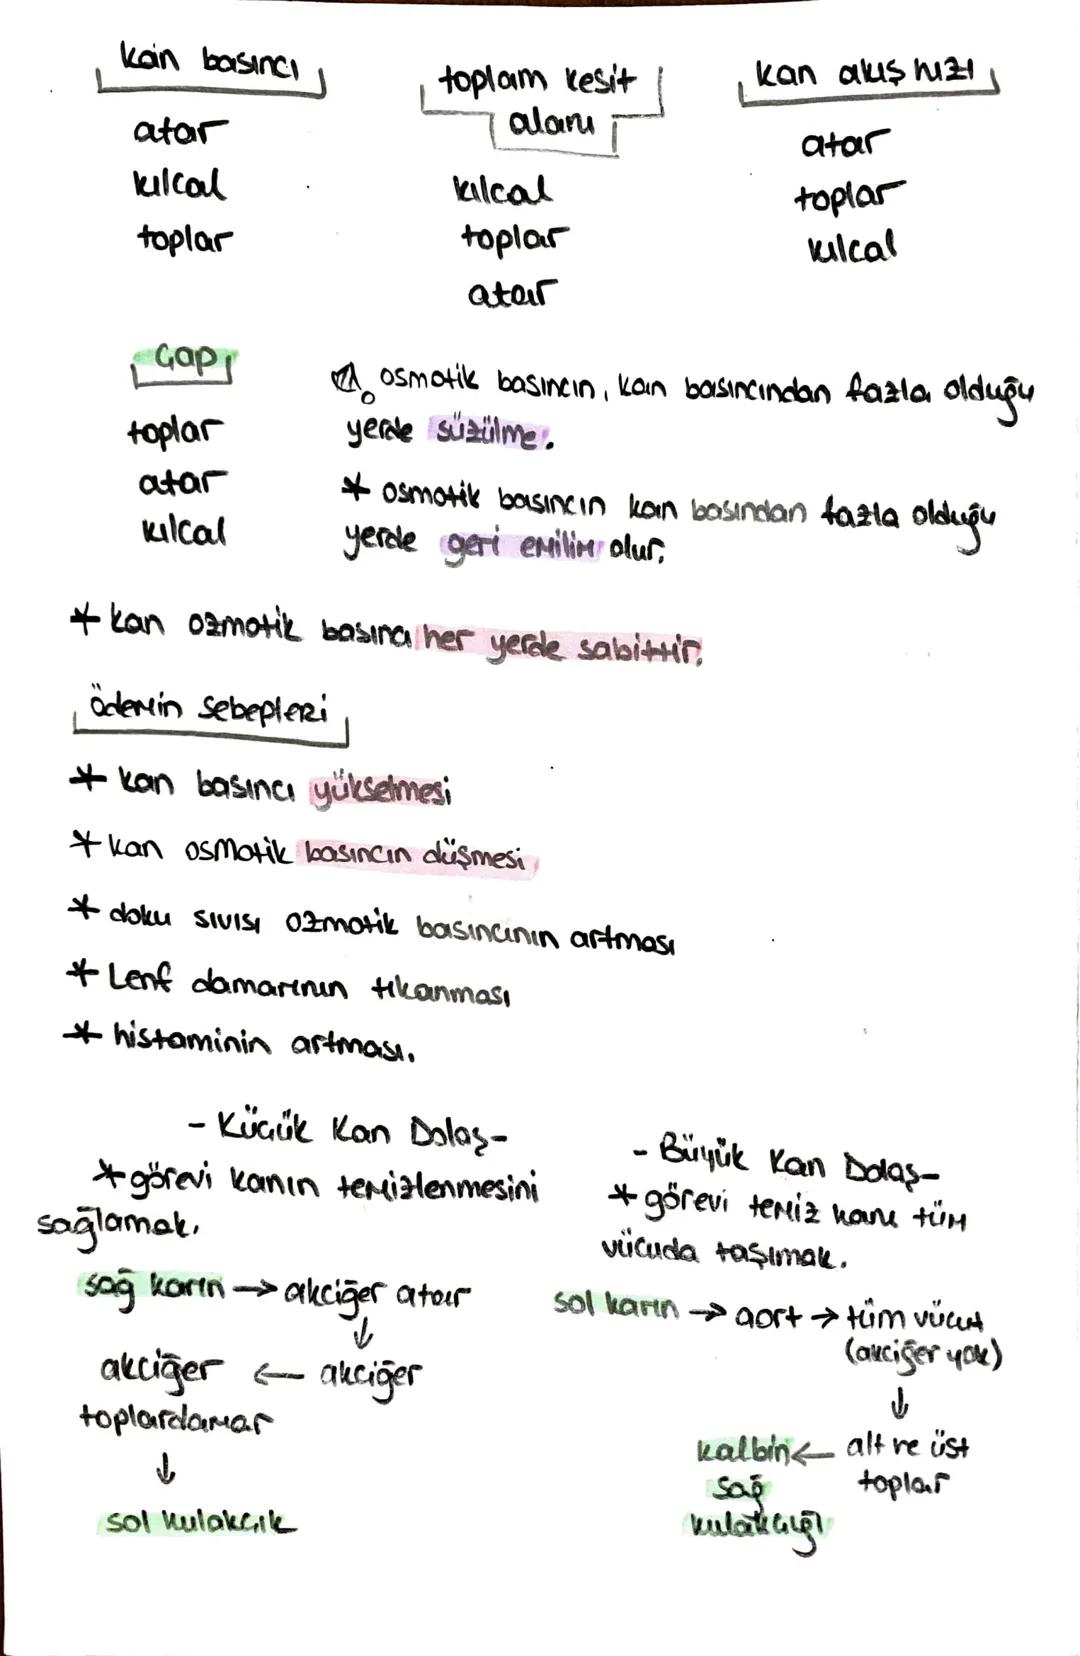 kan basıncı
atar
kılcal
toplar
toplam kesit
alanı
kılcal
toplar
atar
kan akış hızı
atar
toplar
kılcal
Çap
toplar
atar
kılcal
osmotik basıncın, kan basıncından fazla olduğu
yerde süzülme.
* osmotik basıncın kan basından fazla olduğu
yerde geri emilim olur.
* kan ozmotik basıncı her yerde sabittir.
Ödemin sebepleri
* kan basıncı yükselmesi
* kan osmotik basıncın düşmesi
* doku sıvısı ozmotik basıncının artması
* Lenf damarının tıkanması
* histaminin artması.
- Küçük Kan Dolaş-
* görevi kanın temizlenmesini
sağlamak.
sağ karın → akciğer atar
↓
akciğer ← akciğer
toplardamar
↓
sol kulakçık
- Büyük Kan Dolaş-
* görevi temiz kanı tüm
vücuda taşımak.
sol karın → aort → tüm vücut
(akciğer yok)
↓
kalbin ← alt ve üst
sağ toplar
kulakçığı